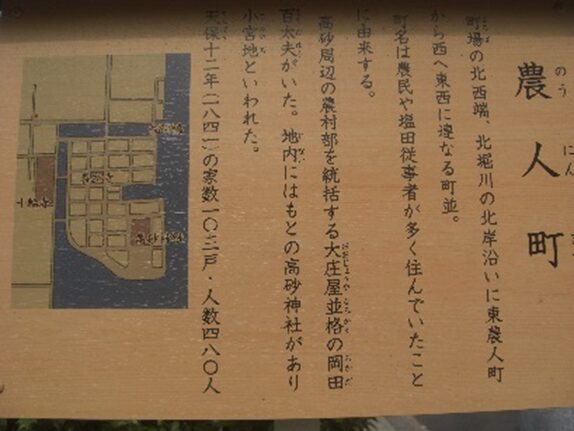 農人町
のう
にん
町場の北西端、北堀川の北岸沿いに東農人町
から西へ東西に連なる町並。
町名は農民や塩田従事者が多く住んでいたこと
に由来する。
高砂周辺の農村部を統括する大庄屋並格の岡田
百太夫がいた。地内にはもとの高砂神社があり
小宮地といわれた。
天保十二年(一八四一)の家数一〇三戸・人数四八〇人
十輪寺